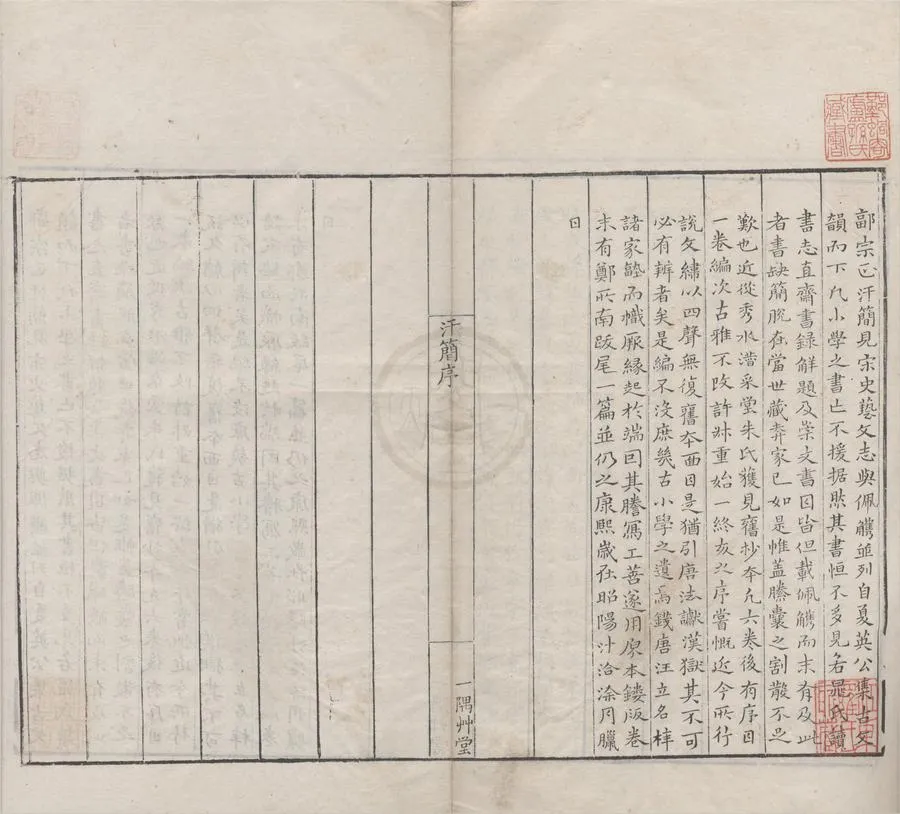 郭宗正汗簡見宋史藝文志與佩觿並列自夏英公集古文
韻而下凡小學之書亡不援据肰其書恒不多見名鼂氏讀
書志直齋書録解題及崇文書目皆但載佩觿而末有及此
者書缺簡脫在當世藏弆家已如是帷蓋縢囊之割散不足
歎也近從秀水潛采堂朱氏獲見舊抄夲凡六卷後有序目
一卷編次古雅不改許尗重始一終亥之序嘗慨近今所行
說文繡以四聲無復舊夲面目是猶引唐法讞漢獄其不可
必有辨者矣是編不沒庶幾古小學之遺焉錢唐汪立名梓
諸家塾而幟厥緣起於端囙其謄寫工善遂用原本鏤版卷
末有鄭所南跋尾一篇並仍之康熙歲在昭陽汁洽涂月臘
日
汗簡序
一隅艸堂